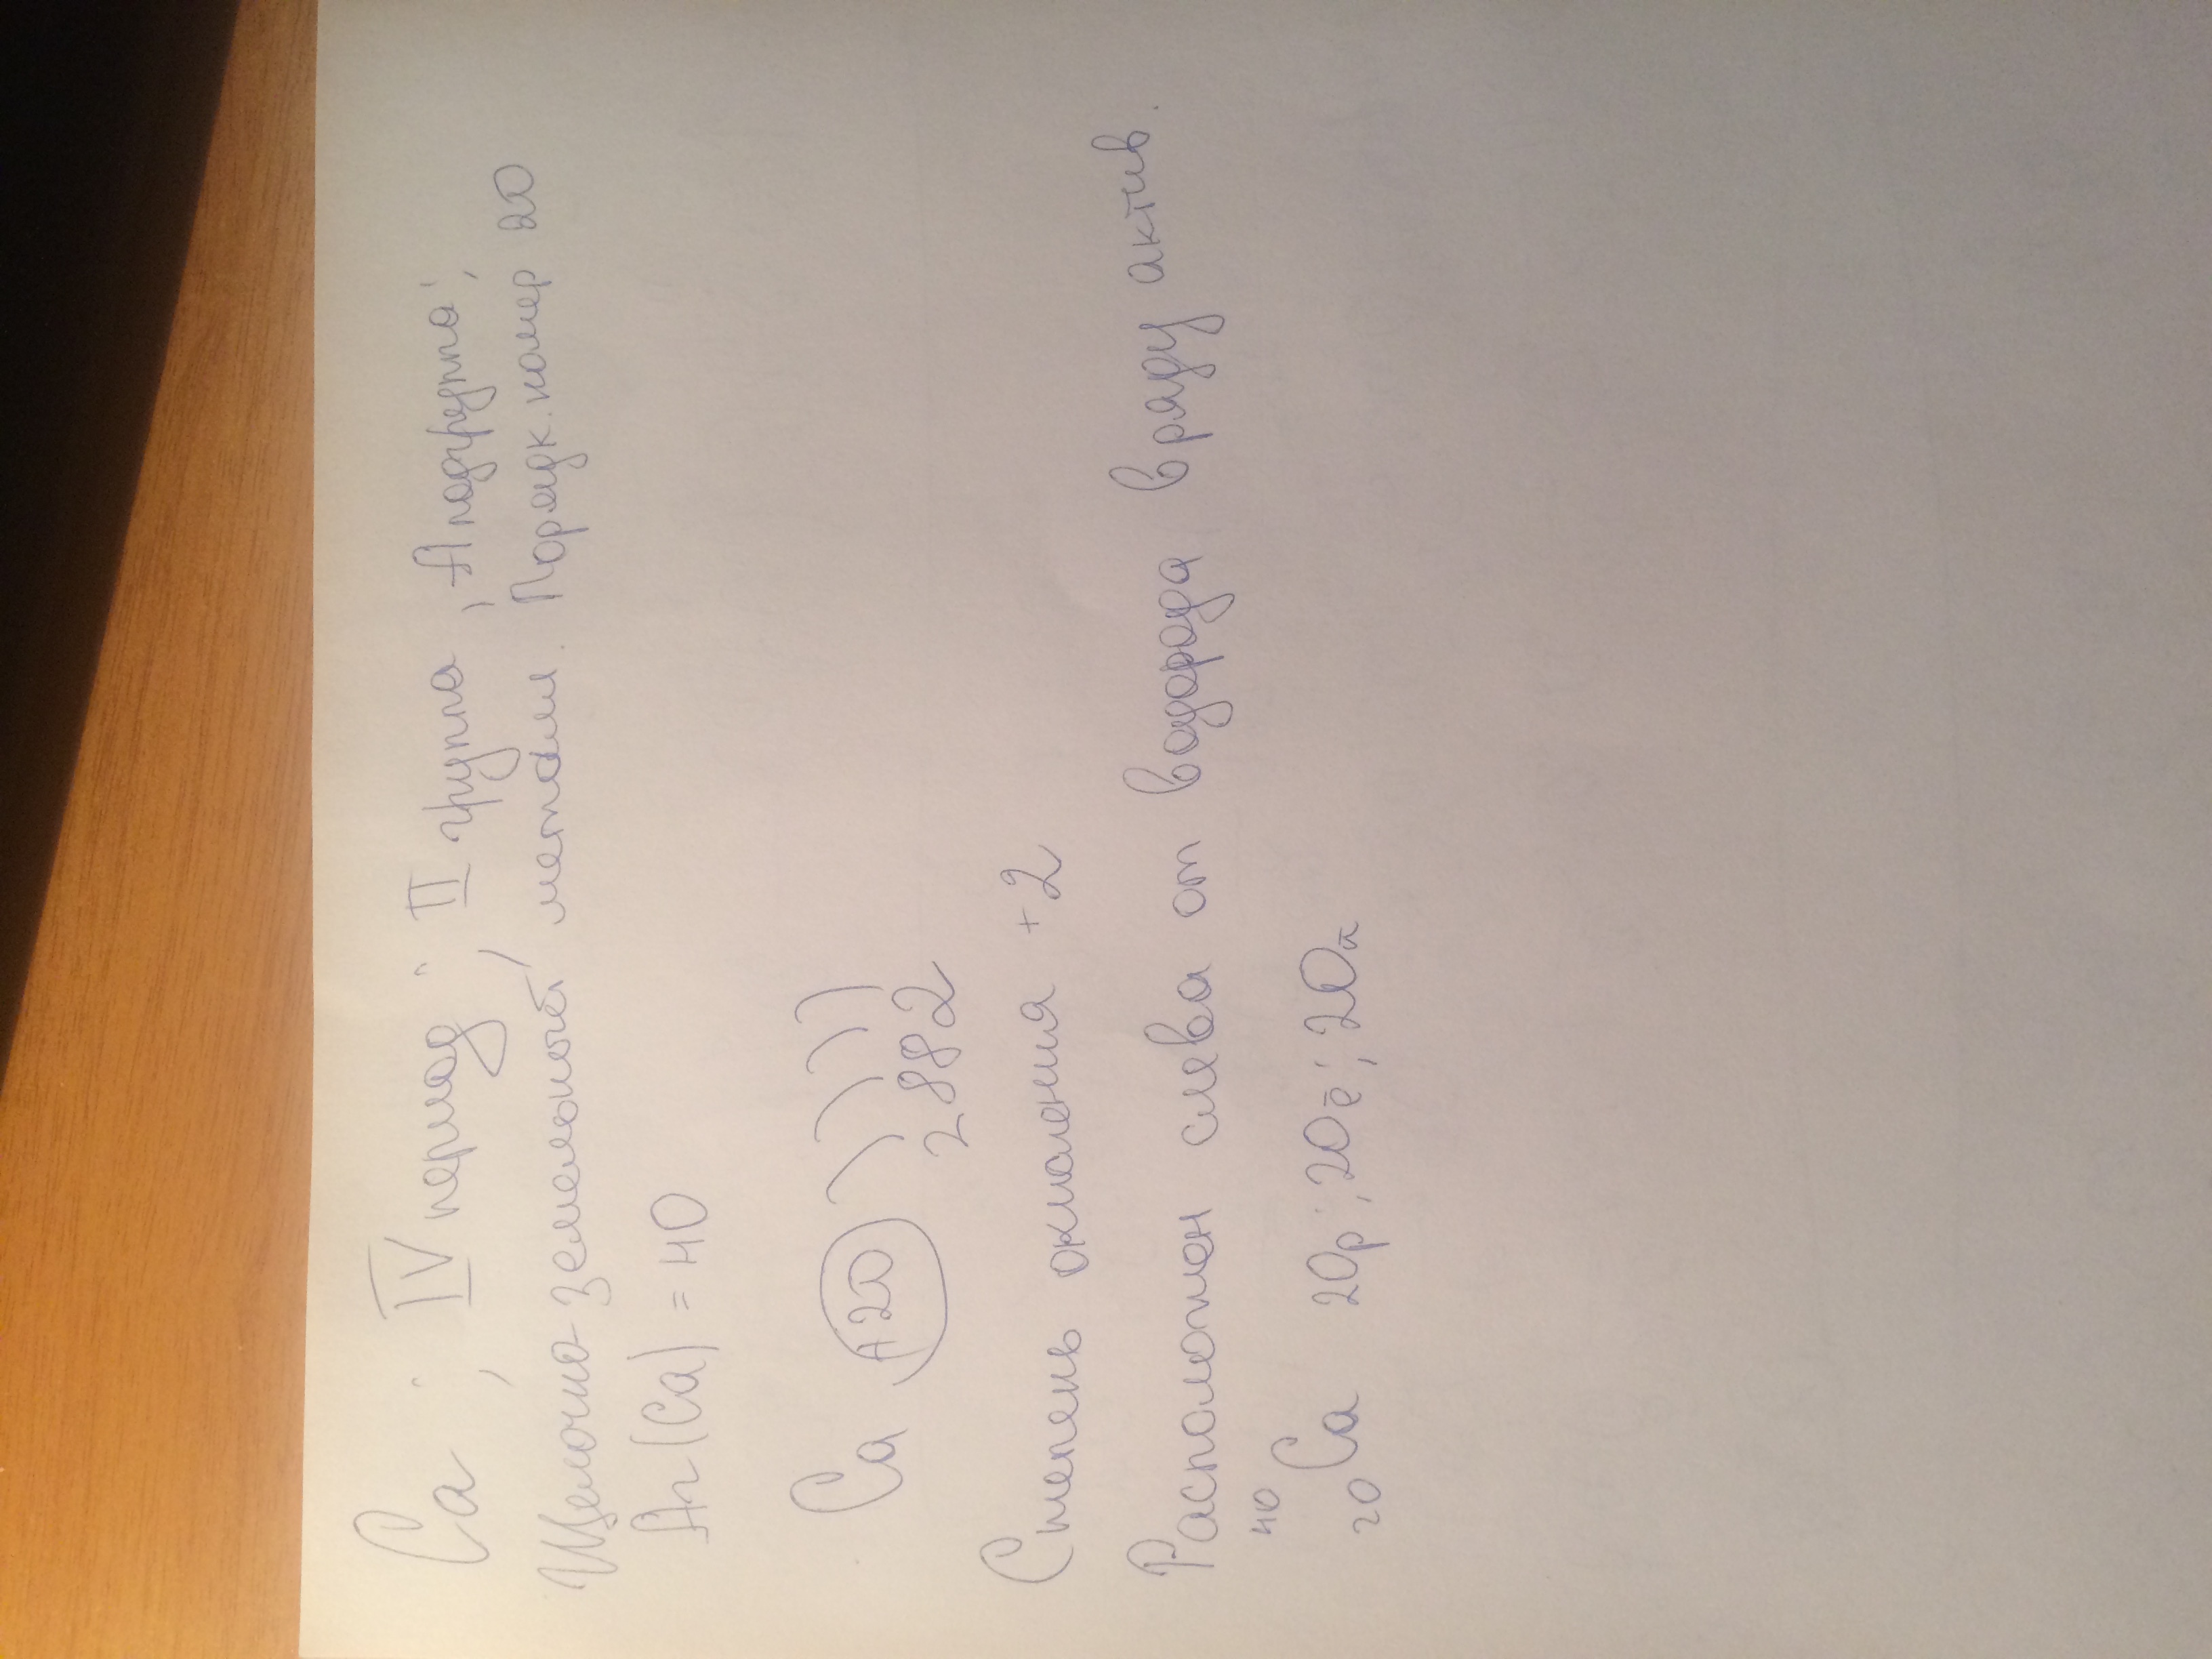 Ca ; IV период ; II группа , А подгруппа ;
Щелочно-земельный металл . Порядк. номер 20
Ar (Ca) = 40
Ca +20 ) ) ) )
2 8 8 2
Степень окисления +2
Расположен слева от водорода в ряду актив .
40
20 Ca 20p ; 20ē ; 20n